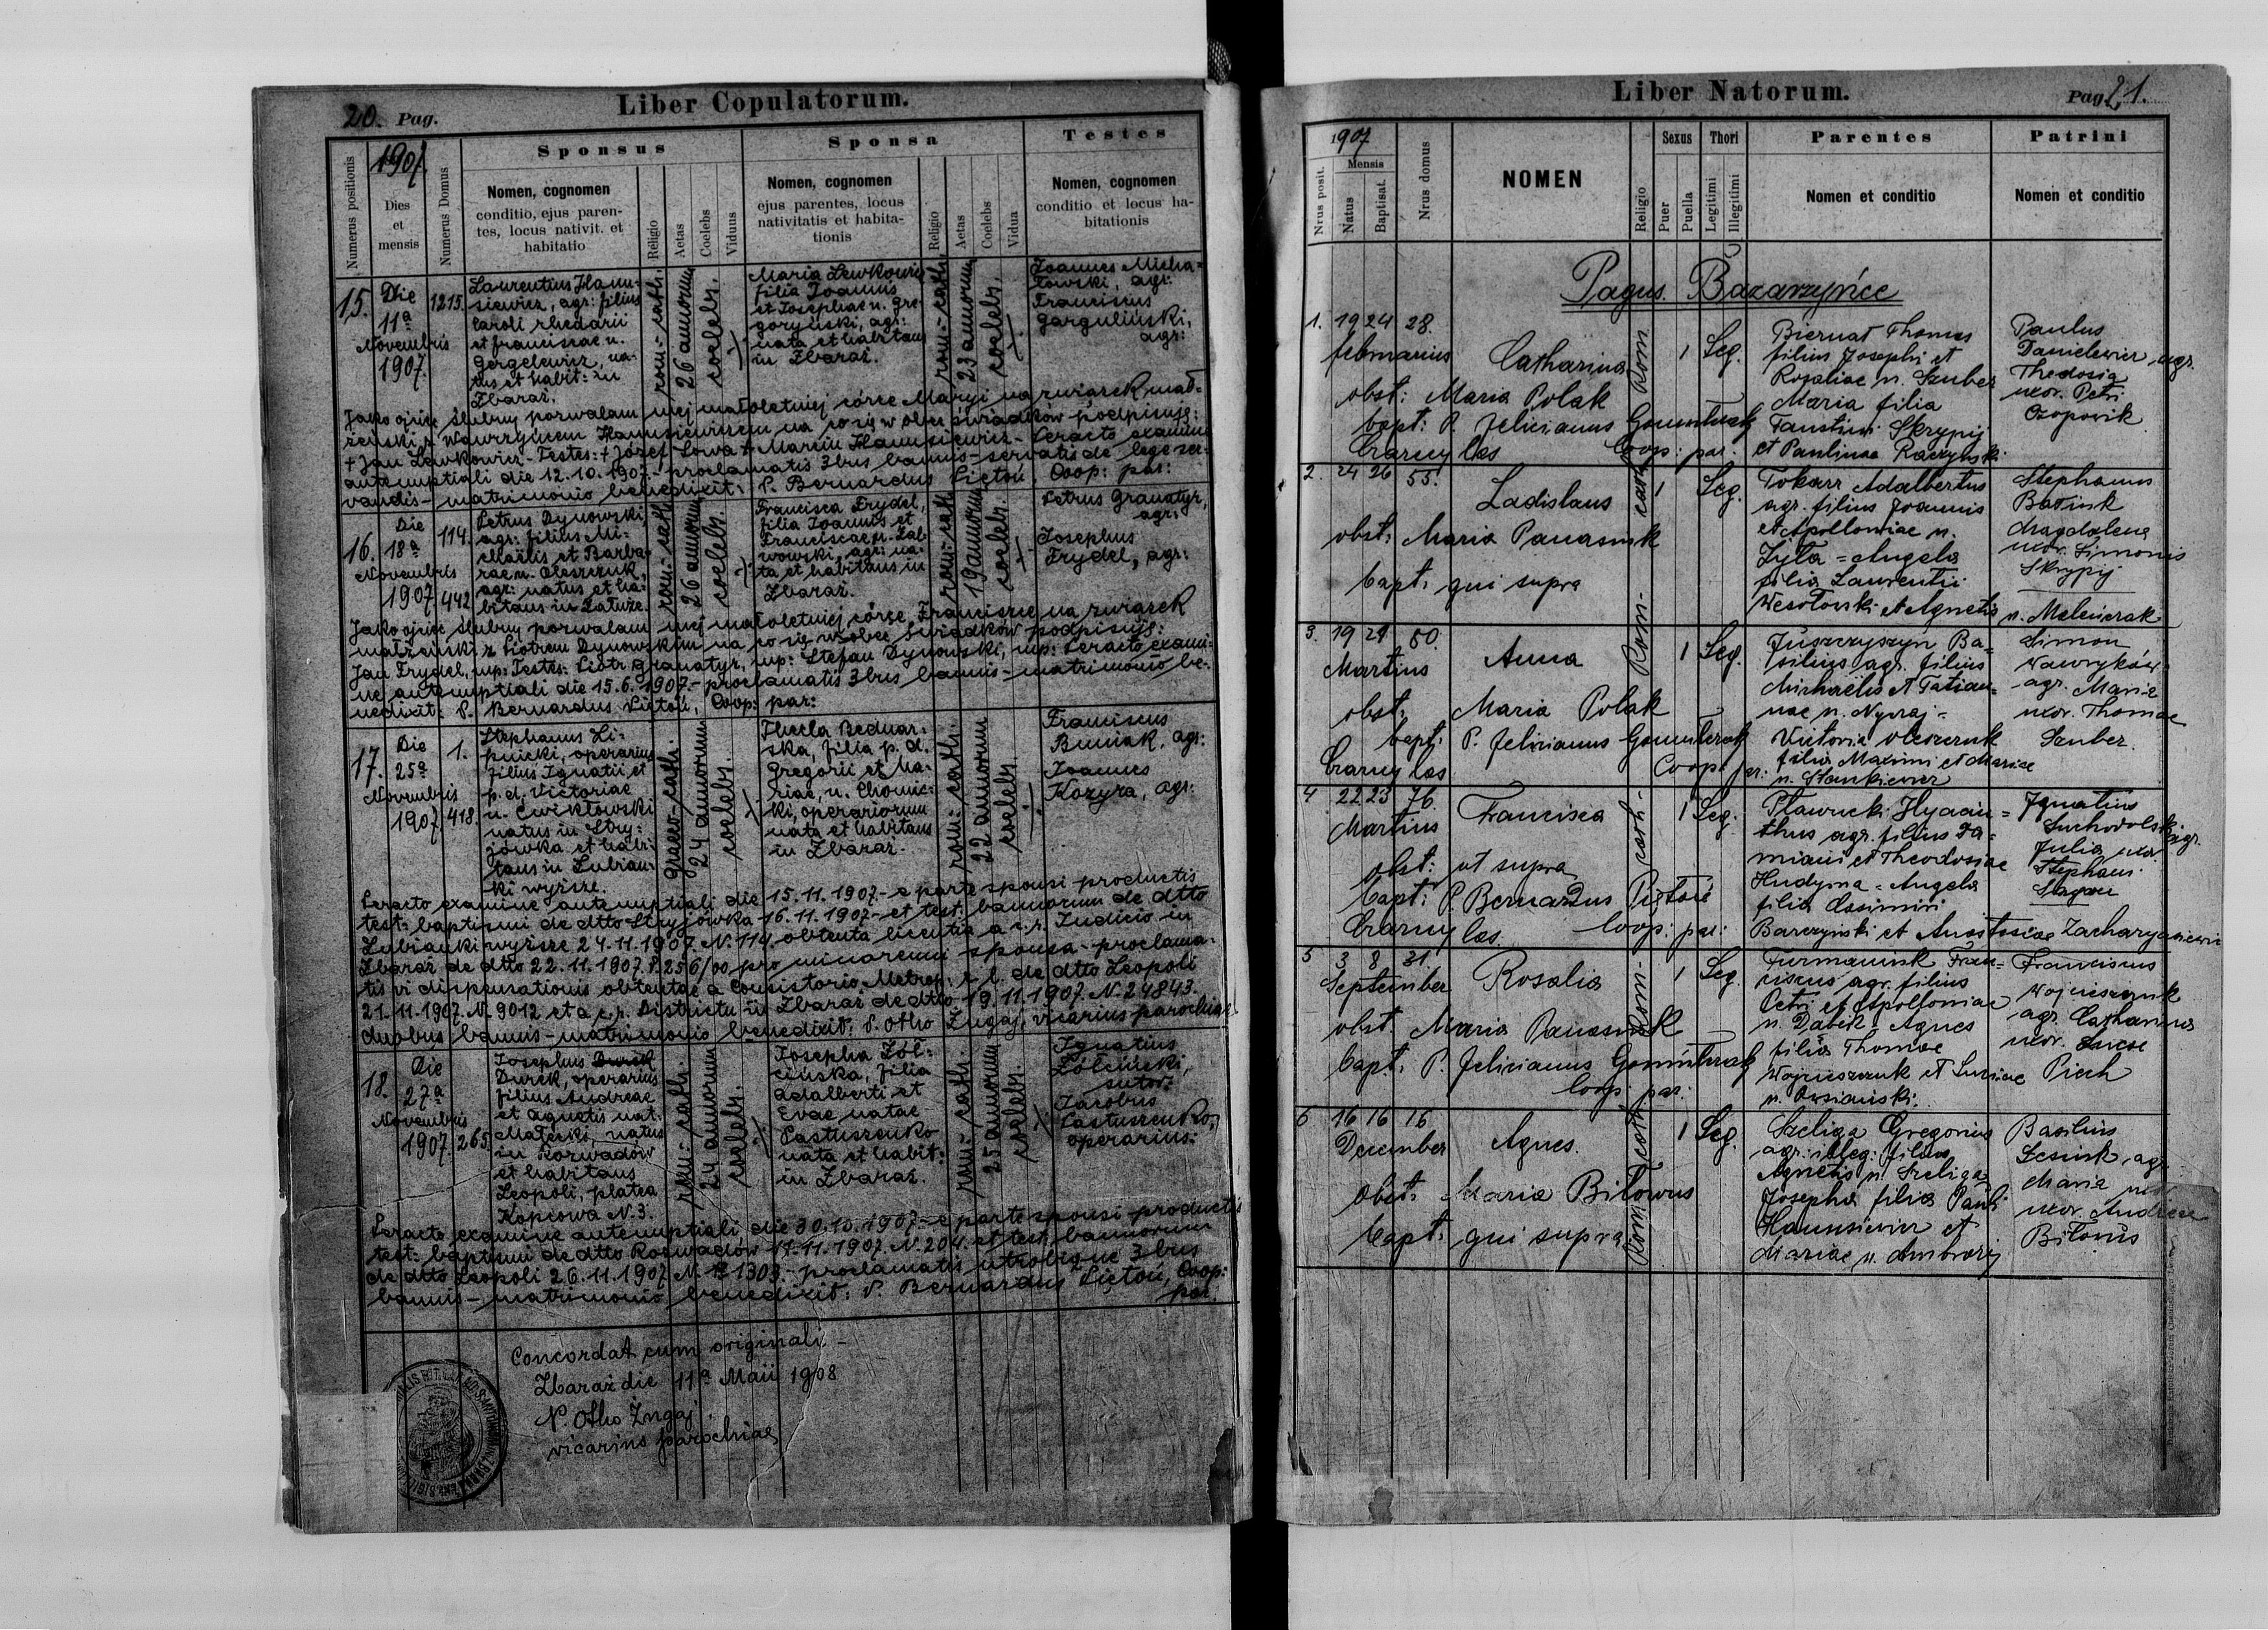 20. Pag.
Liber Copulatorum.
Numerus positionis
1907.
Dies
et
mensis
Numerus Domus
Sponsus
Nomen, cognomen
conditio, ejus paren-
tes, locus nativit. et
habitatio
Religio
Aetas
Coelebs
Viduus
Sponsa
Nomen, cognomen
ejus parentes, locus
nativitatis et habita-
tionis
Religio
Aetas
Coelebs
Vidua
Testes
Nomen, cognomen
conditio et locus ha-
bitationis
15.
Die
11ª
Novembris
1907.
1215.
Laurentius Hanu-
siewicz, agr: filius
Caroli rhedarii
et Franciscae n.
Gergelewicz, na-
tus et habit: in
Zbaraż.
rom:-cath.
26 annorum
coelebs.
Maria Lewkowicz
filia Joannis
et Josephae n. Gre-
goryński, agr:
nata et habitans
in Zbaraż.
rom:-cath.
23 annorum
coelebs.
Joannes Micha-
łowski, agr:
Franciscus
Garguliński,
agr:
Jako ojciec ślubny pozwalam mej małoletniej córce Maryi na związek mał-
żeński z Wawrzyńcem Hanusiewiczem na co się w obec świadków podpisuję:
+ Jan Lewkowicz - Testes: + Józef Sowa + Marcin Hanusiewicz - Peracto examine
antenuptiali die 12.10.1907. - proclamatis 3bus bannis - servatis de lege ser-
vandis - matrimonio benedixit: P. Bernardus Pietoń, Coop: par:
16.
Die
18ª
Novembris
1907
114.
442
Petrus Dynowski,
agr: filius Mi-
chaelis et Barba-
rae n. Oleszczuk,
agr: natus et ha-
bitans in Załuże.
rom:-cath.
26 annorum
coelebs.
Francisca Frydel,
filia Joannis et
Franciscae n. Zab-
wowski, agr: na-
ta et habitans in
Zbaraż.
rom:-cath.
19 annorum
coelebs.
Petrus Granatyr,
agr:
Josephus
Frydel, agr:
Jako ojciec ślubny pozwalam mej małoletniej córce Franciszce na związek
małżeński z Piotrem Dynowskim na co się w obec świadków podpisuję:
Jan Frydel, mp: Testes: Piotr Granatyr, mp: Stefan Dynowski, mp: Peracto exami-
ne antenuptiali die 15.6.1907. - proclamatis 3bus bannis - matrimonio be-
nedixit: P. Bernardus Pietoń, Coop: par:
17.
Die
25ª
Novembris
1907.
1.
418.
Stephanus Li-
pnicki, operarius
filius Ignatii et
p. d. Victoriae
n. Ćwikłowski
natus in Stry-
jówka et habi-
tans in Lubian-
ki wyższe.
graeco-cath.
24 annorum
coelebs.
Thecla Bednar-
ska, filia p. d.
Gregorii et Ma-
riae, n. Chomic-
ki, operariorum
nata et habitans
in Zbaraż.
rom:-cath.
22 annorum
coelebs.
Franciscus
Buniak, agr:
Joannes
Kozyra, agr:
Peracto examine antenuptiali die 15.11.1907. - e parte sponsi productis
test: baptismi de dtto Stryjówka 16.11.1907 - et test. bannorum de dtto
Lubianki wyższe 24.11.1907. N. 114, obtenta licentia a c. r. Iudicio in
Zbaraż de dtto 22.11.1907. P. 256/00 pro minorenni sponsa - proclama-
tis vi dispensationis obtentae a Consistorio Metrop. r. l. de dtto Leopoli
21.11.1907. N. 9012 et a c. r. Districtu in Zbaraż de dtto 19.11.1907. N. 24843.
duobus bannis - matrimonio benedixit: P. Otho Żugaj, vicarius parochiae.
18.
Die
27ª
Novembris
1907.
265.
Josephus Durek
Durek, operarius
filius Andreae
et Agnetis nat.
Małecki, natus
in Rozwadów
et habitans
Leopoli, platea
Kopcowa N. 3.
rom:-cath.
24 annorum
coelebs.
Josepha Żół-
cińska, filia
Adalberti et
Evae natae
Pastuszenko
nata et habit:
in Zbaraż.
rom:-cath.
25 annorum
coelebs.
Ignatius
Żółciński,
sutor.
Jacobus
Pastuszenko,
operarius.
Peracto examine antenuptiali die 30.10.1907. - e parte sponsi productis
test: baptismi de dtto Rozwadów 11.11.1907. N. 204. et test. bannorum
de dtto Leopoli 26.11.1907. N. 1303. - proclamatis utrobique 3bus
bannis - matrimonio benedixit: P. Bernardus Pietoń, Coop:
par.
Concordat cum originali -
Zbaraż die 11ª Maii 1908
P. Otho Żugaj
vicarius parochiae
Liber Natorum.
Pag. 21.
Nrus posit.
1907
Mensis
Natus
Baptisat.
Nrus domus
NOMEN
Religio
Sexus
Puer
Puella
Thori
Legitimi
Illegitimi
Parentes
Nomen et conditio
Patrini
Nomen et conditio
Pagus Bazarzyńce
1. 19 24 28.
februarius
Catharina
obst: Maria Polak
bapt: P. Felicianus Gomułczak
Czarny las Coop: par.
Rom
1
Leg.
Biernat Thomas
filius Josephi et
Rosaliae n. Szuber
Maria filia
Faustini Skrypij
et Paulinae Raczyński
Paulus
Danielewicz, agr.
Thedosia
uxor. Petri
Czopowik
2. 24 26 55.
Ladislaus
obst: Maria Panasiuk
bapt: qui supra
cath
1
Leg.
Tokarz Adalbertus
agr. filius Joannis
et Apolloniae n.
Żyła = Angela
filia Laurentii
Wesołowski et Agnetis
n. Maleńczak
Stephanus
Batiuk
Magdalena
uxor. Simonis
Skrypij
3. 19 21 50.
Martius
Anna
obst. Maria Polak
bapt: P. Felicianus Gomułczak
Czarny las Coop: par:
Rom-
1
Leg.
Juszczyszyn Ba-
silius agr. filius
Michaelis et Tatian-
nae n. Nycraj =
Victoria Oleszczuk
filia Maximi et Mariae
n. Stankiewicz
Simon
Wawryków
agr. Maria
uxor. Thomae
Szuber.
4 22 23 76.
Martius
Francisca
obst: ut supra
bapt: P. Bernardus Pietoń
Czarny las. Coop: par:
cath-
1
Leg.
Pławucki Hyacin-
thus agr. filius Da-
miani et Theodosiae
Hudyma = Angela
filia Cassimiri
Barczyński et Anastasiae Zacharyasiewicz
Ignatius
Suchodolski agr.
Julia uxor
Stephani
Stagan
5 3 8 31.
September
Rosalia
obst. Maria Panasiuk
bapt. P. Felicianus Gomułczak
Coop: par:
Rom-
1
Leg.
Furmaniuk Fran-
ciscus agr. filius
Petri et Apolloniae
n. Dabek - Agnes
filia Thomae
Wojcieszczuk et Luciae
n. Owsianski.
Franciscus
Wojcieszczuk
agr. Catharina
uxor. Lucae
Piech
6 16 16 16
December
Agnes.
Obst: Maria Bilowus
bapt: qui supra
Rom: cath
1
Leg.
Szeliga Gregorius
agr. illeg: filius
Agnetis n. Szeliga
Josepha filia Pauli
Hanusiewicz et
Mariae n. Ambroży
Basilius
Lesiuk, agr.
Maria
uxor. Andreae
Biłowus